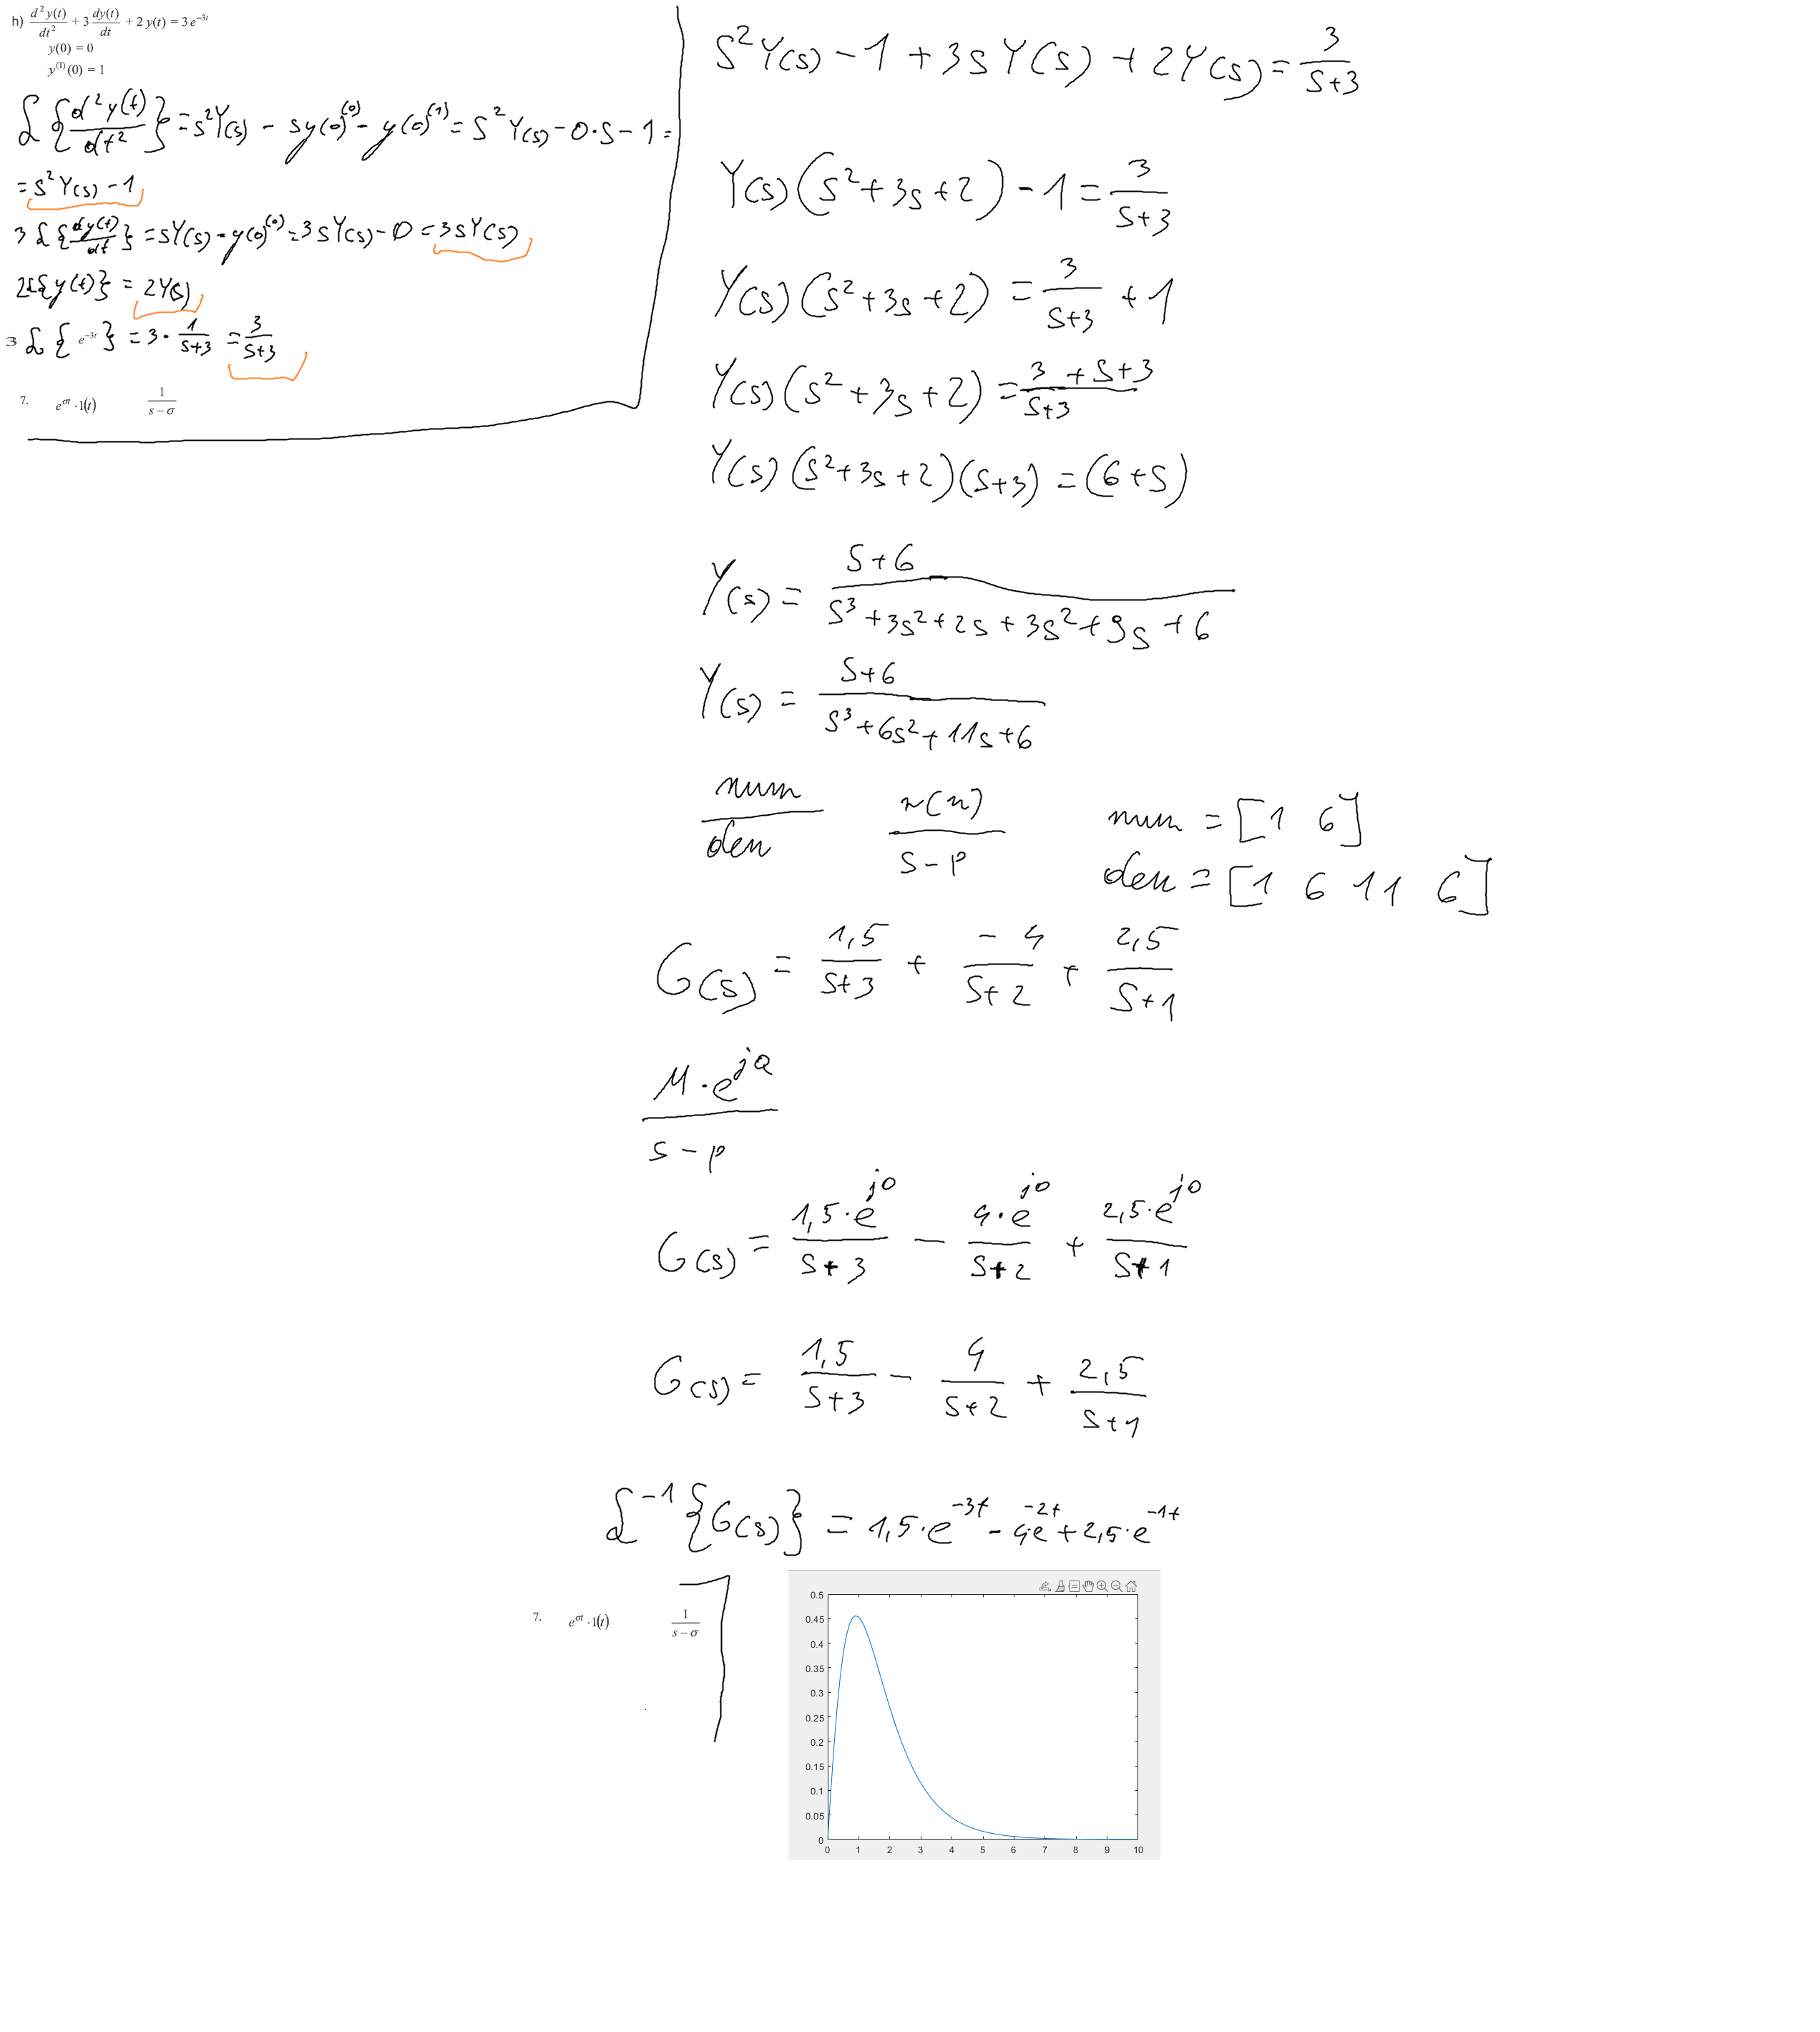 h) d²y(t)/dt² + 3 dy(t)/dt + 2 y(t) = 3 e^(-3t)
y(0) = 0
y^(1)(0) = 1
ℒ{d²y(t)/dt²} = s²Y(s) - sy(0)^(0) - y(0)^(1) = s²Y(s) - 0·s - 1 =
= s²Y(s) - 1
3 ℒ{dy(t)/dt} = sY(s) - y(0)^(0) = 3sY(s) - 0 = 3sY(s)
2ℒ{y(t)} = 2Y(s)
3 ℒ{e^(-3t)} = 3 · 1/(s+3) = 3/(s+3)
7. e^(σt) · 1(t) 1/(s - σ)
s²Y(s) - 1 + 3sY(s) + 2Y(s) = 3/(s+3)
Y(s)(s² + 3s + 2) - 1 = 3/(s+3)
Y(s)(s² + 3s + 2) = 3/(s+3) + 1
Y(s)(s² + 3s + 2) = (3 + s+3)/(s+3)
Y(s)(s² + 3s + 2)(s+3) = (6+s)
Y(s) = (s+6)/(s³ + 3s² + 2s + 3s² + 9s + 6)
Y(s) = (s+6)/(s³ + 6s² + 11s + 6)
num/den r(n)/(s-p) num = [1 6]
den = [1 6 11 6]
G(s) = 1,5/(s+3) + -4/(s+2) + 2,5/(s+1)
M·e^(jQ)/(s-p)
G(s) = 1,5·e^(j0)/(s+3) - 4·e^(j0)/(s+2) + 2,5·e^(j0)/(s+1)
G(s) = 1,5/(s+3) - 4/(s+2) + 2,5/(s+1)
ℒ^(-1){G(s)} = 1,5·e^(-3t) - 4·e^(-2t) + 2,5·e^(-1t)
7. e^(σt) · 1(t) 1/(s - σ)
0.5
0.45
0.4
0.35
0.3
0.25
0.2
0.15
0.1
0.05
0
0 1 2 3 4 5 6 7 8 9 10